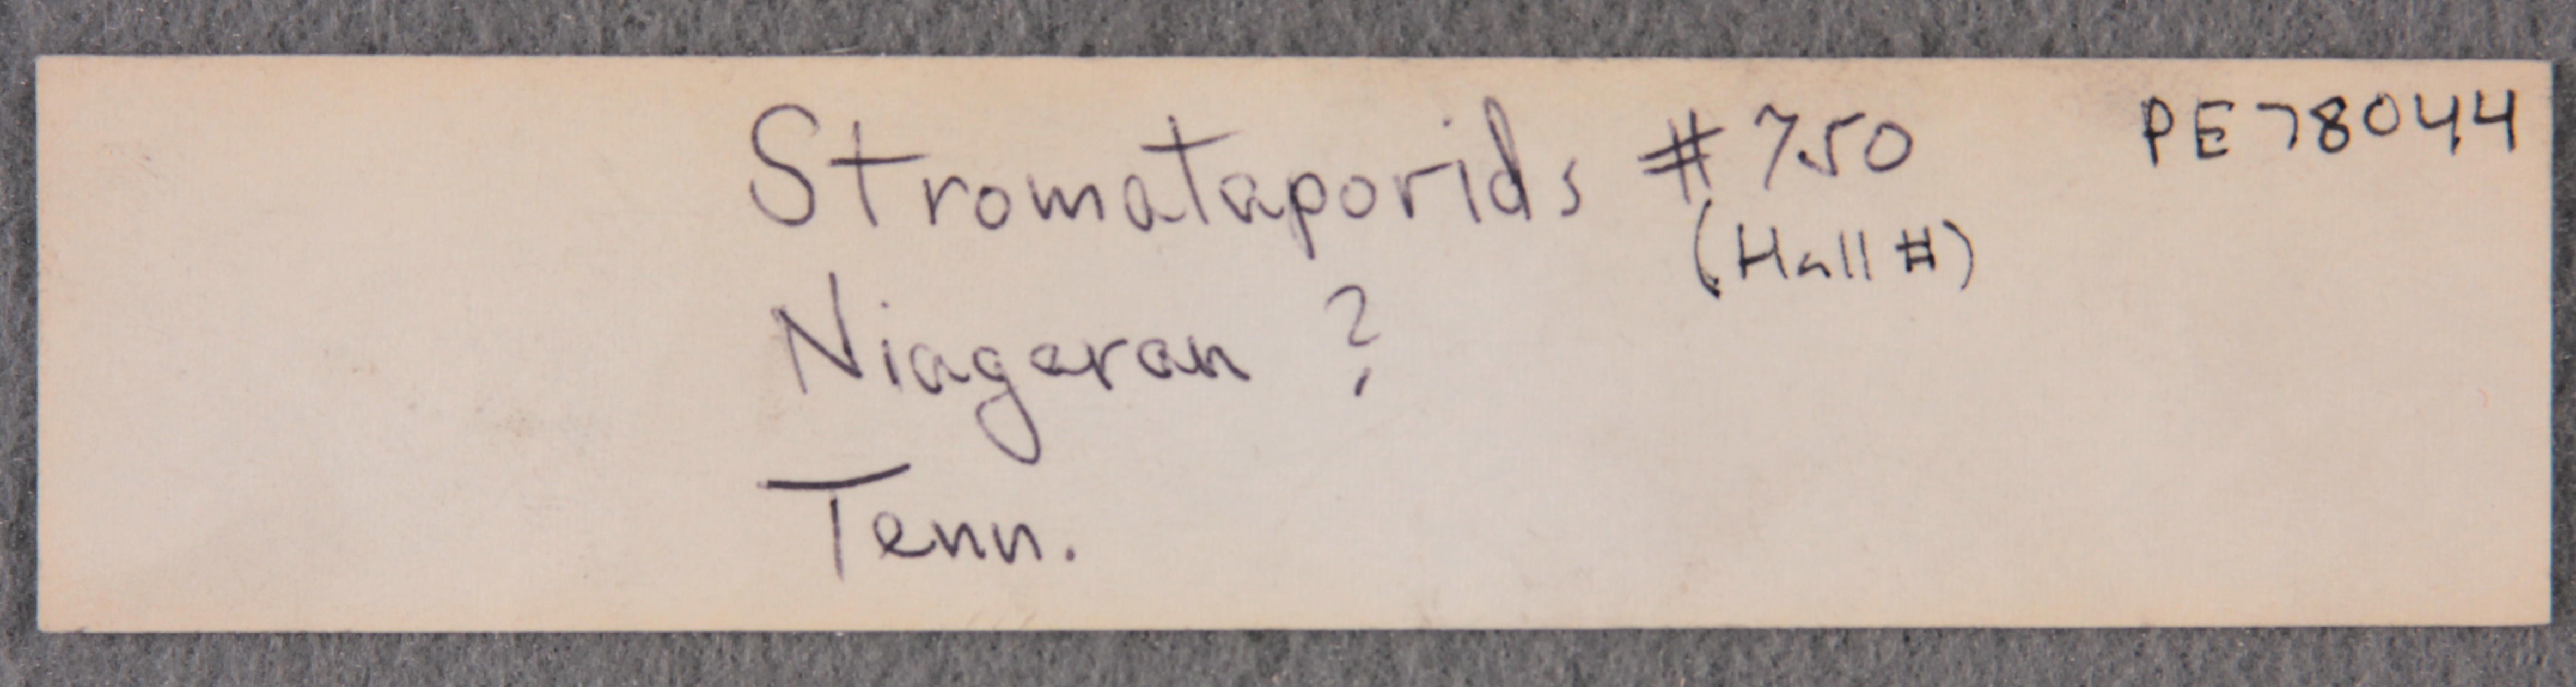 Stromataporids #750 PE78044
(Hall #)
Niageran ?
Tenn.